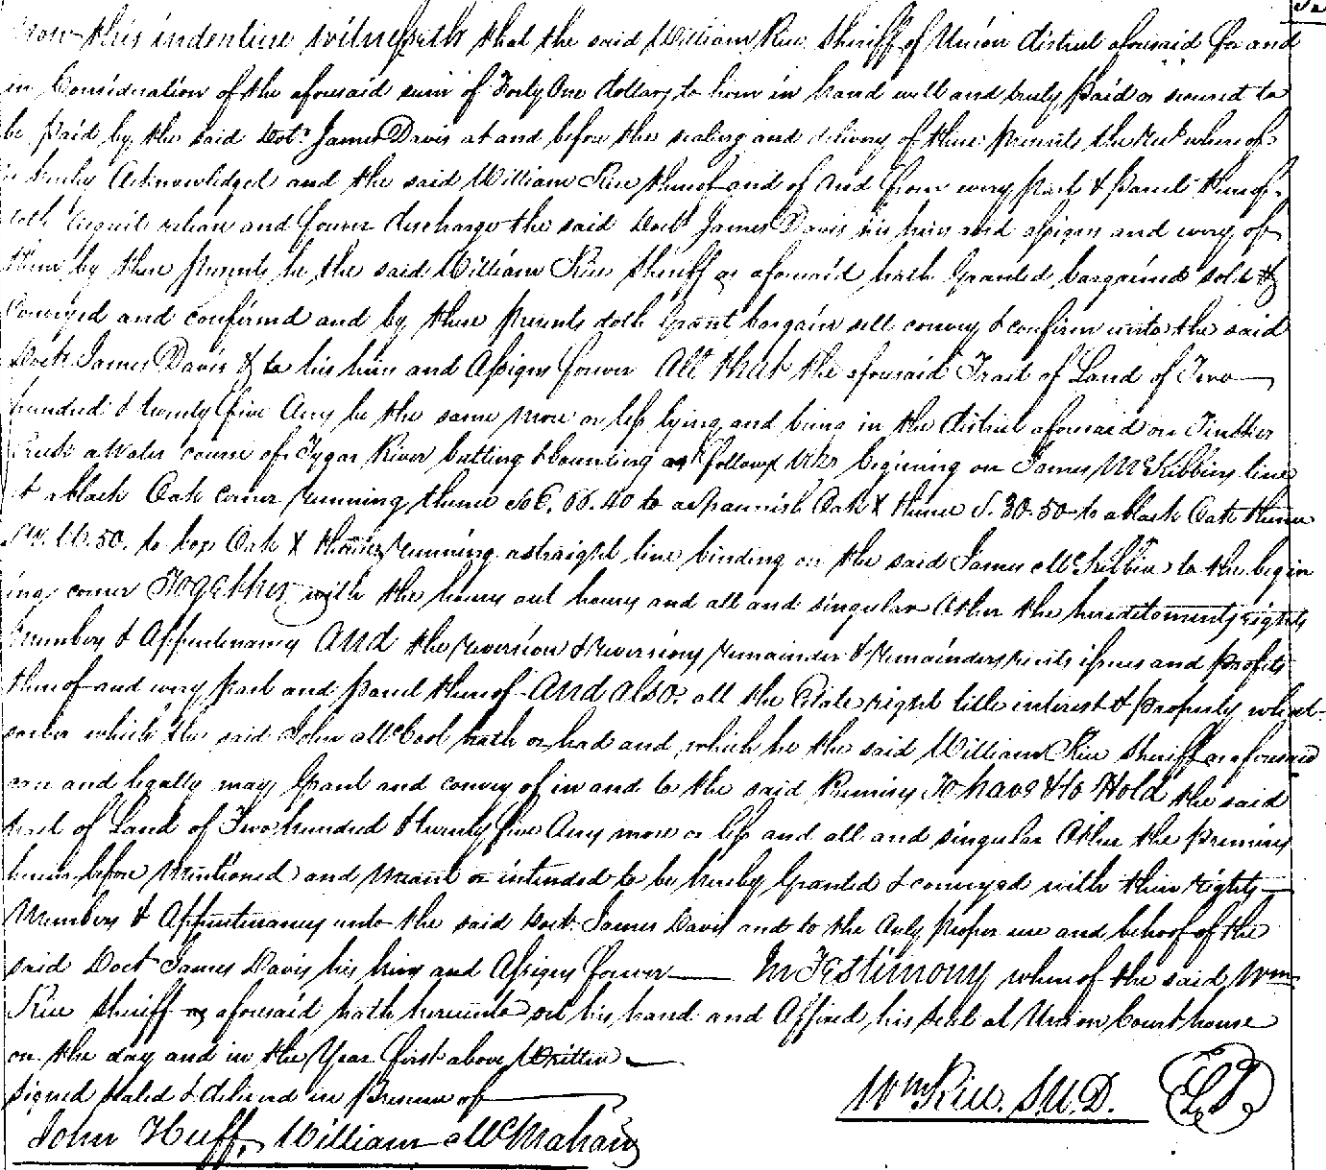 Now this indenture witnesseth that the said William Rice Sheriff of Union district aforesaid for and
in Consideration of the aforesaid sum of Forty One dollars to him in hand well and truly paid or secured to
be paid by the said Doct. James Davis at and before the sealing and delivery of these presents the Rect. whereof
is hereby Acknowledged and the said William Rice thereof and of and from every part & parcel thereof
doth acquit release and forever discharge the said Doct. James Davis his heirs and assigns and every of
them by these presents he the said William Rice Sheriff as aforesaid hath Granted bargained sold &
Conveyed and confirmd and by these presents doth Grant bargain sell convey & confirm unto the said
Doct. James Davis & to his heirs and Assigns forever All that the aforesaid Tract of Land of Two
hundred & twenty five Acres be the same more or less lying and being in the district aforesaid on Tinker
Creek a Water course of Tygar River butting & bounding as follows Viz begining on James McKibbins line
at a black Oak corner running thence No E. 66. 40 to a spannish Oak X thence S. 30. 50 to a black Oak thence
SW. 66. 50. to box Oak X thence running a straight line binding on the said James McKibbin to the begin
ing corner Together with the houses out houses and all and singular Other the hereditements rights
members & Appurtenances And the reversion & reversions remainder & remainders rents issues and profits
thereof and every part and parcel thereof And also all the Estate right title interest & property what-
soever which the said John McCool hath or had and which he the said William Rice Sheriff as aforesaid
can and legally may Grant and convey of in and to the said Premises To have & to Hold the said
tract of Land of Two hundred & twenty five Acres more or less and all and singular Other the premises
herein before Mentioned and Meant or intended to be hereby Granted & conveyed with their rights
Members & Appurtenances unto the said Doct. James Davis and to the Only proper use and behoof of the
said Doct James Davis his heirs and Assigns forever In Testimony whereof the said Wm
Rice Sheriff as aforesaid hath hereunto set his hand and Affixed his seal at Union Court house
on the day and in the Year first above Written
Signed Sealed & delivered in Presence of
Wm Rice. S.U.D. L.S
John Huff, William McMahan